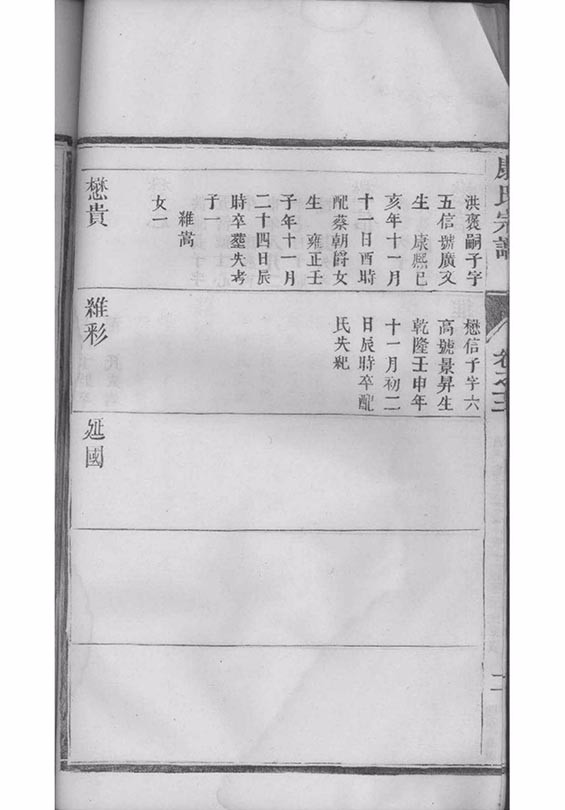 康氏宗譜
卷之三
洪褒嗣子字
五信號廣文
生 康熙己
亥年十一月
十一日酉時
配蔡朝爵女
生 雍正壬
子年十一月
二十四日辰
時卒葬失考
子一
維嵩
女一
懋貴
懋信子字六
高號景昇生
乾隆壬申年
十一月初二
日辰時卒配
氏失紀
維彩
延國